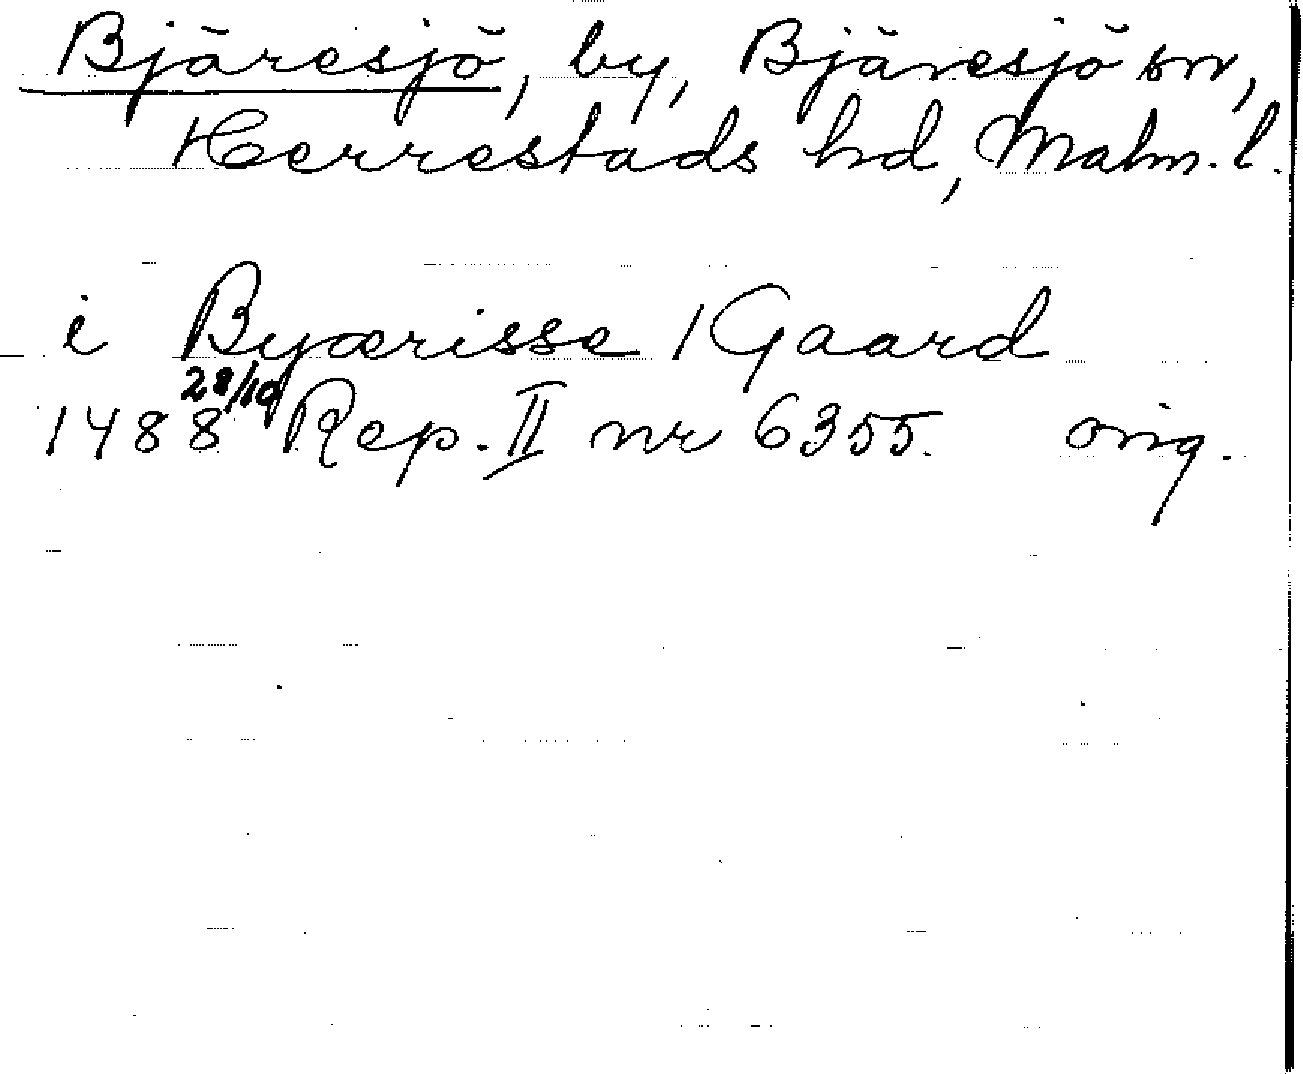 Bjäresjö, by, Bjäresjö sn,
Herrestads hd, Malm. l.
i Byærisse 1 Gaard
28/10
1488 Rep. II nr 6355. orig.